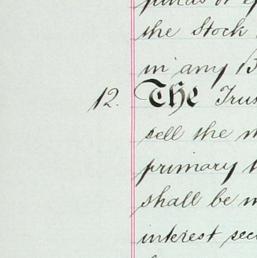 the Stock
in any
12. The Trus
sell the
primary
shall be
interest sec